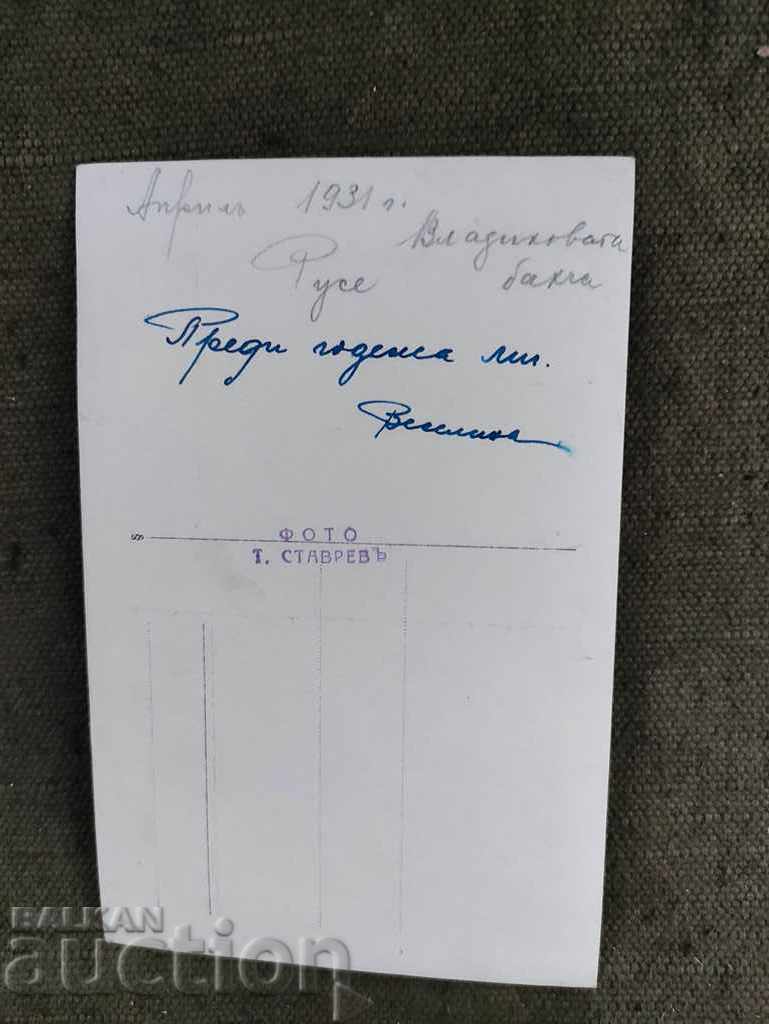 Априлъ 1931 г.
Владиковата
Русе бахча
Преди годежа ми.
Веселина
ФОТО
Т. СТАВРЕВЪ
BALKAN
auction